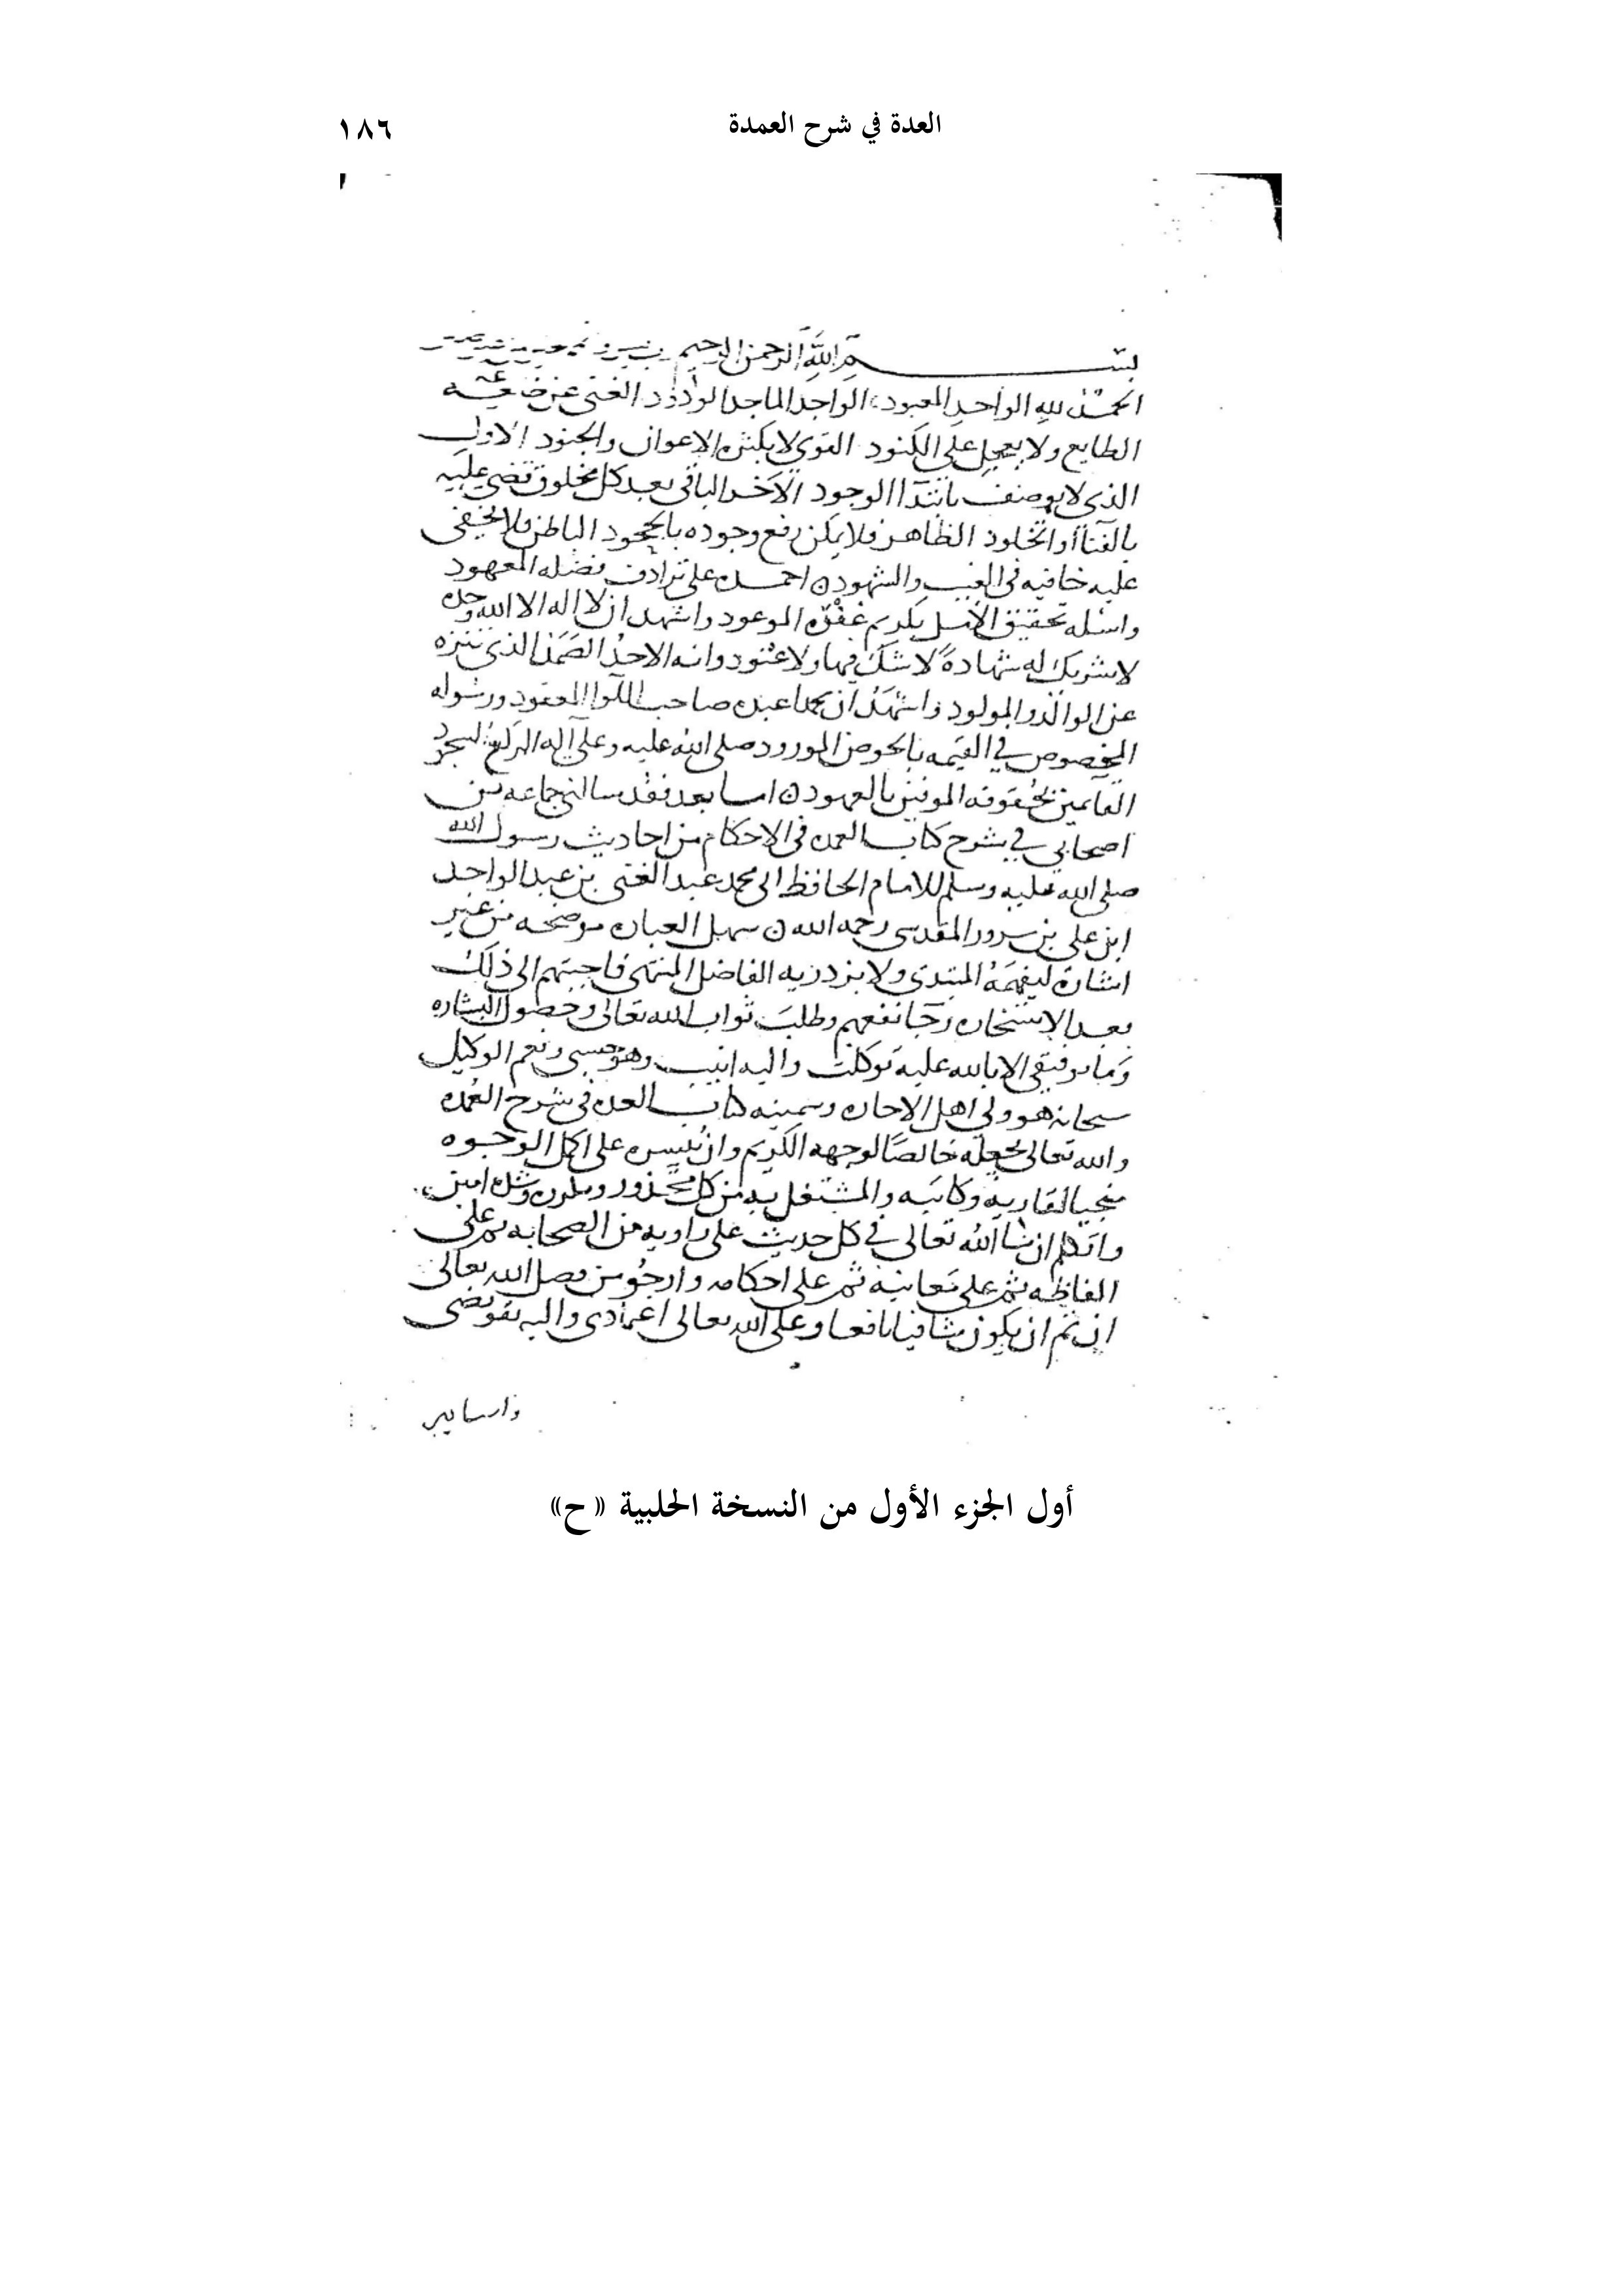 العدة في شرح العمدة
١٨٦
بسم الله الرحمن الرحيم
الحمد لله الواحد المعبود الواجد الماجد الودود الغني عن
الطايع ولا يعجل على الكنود القوي لا بكثرة الاعوان والجنود الاول
الذي لا يوصف بابتدا الوجود الاخر الباقي بعد كل مخلوق قضي عليه
بالفنا او الخلود الظاهر فلا يمكن رفع وجوده بالجحود الباطن فلا يخفى
عليه خافيه في الغيب والشهود احمده على ترادف فضله المعهود
واسئله تحقيق الامل بكريم عفوه الموعود واشهد ان لا اله الا الله وحده
لا شريك له شهادةً لا شك فيها ولا عنود وانه الاحد الصمد الذي تنزه
عن الوالد والمولود واشهد ان محمدا عبده صاحب اللوا المعقود ورسوله
المخصوص في القيمه بالحوض المورود صلى الله عليه وعلى آله الركع السجود
القايمين بحقوقه الموفين بالعهود اما بعد فقد سالني جماعه من
اصحابي في شرح كتاب العمده في الاحكام من احاديث رسول الله
صلى الله عليه وسلم للامام الحافظ ابي محمد عبد الغني بن عبد الواحد
ابن علي بن سرور المقدسي رحمه الله سهل العباره موضحه من غير
اشارة ليفهمه المبتدي ولا يزدريه الفاضل المنتهي فاجبتهم الى ذلك
بعد الاستخاره رجا نفعهم وطلب ثواب الله تعالى وحصول البشاره
وما توفيقي الا بالله عليه توكلت واليه انيب وهو حسبي ونعم الوكيل
سبحانه هو ولي اهل وسميته كتاب العده في شرح العمده
والله تعالى يجعله خالصًا لوجهه الكريم وان ييسره على اكمل الوجوه
منجيا لقاريه وكاتبه والمشتغل به من كل محذور امين
واتكلم ان شا الله تعالى في كل حديث على راويه من الصحابه ثم على
الفاظه ثم على معانيه ثم على احكامه وارجو من فضل الله تعالى
ان تم ان يكون شافيا نافعا وعلى الله تعالى اعتمادي واليه تفويضي
أول الجزء الأول من النسخة الحلبية «ح»